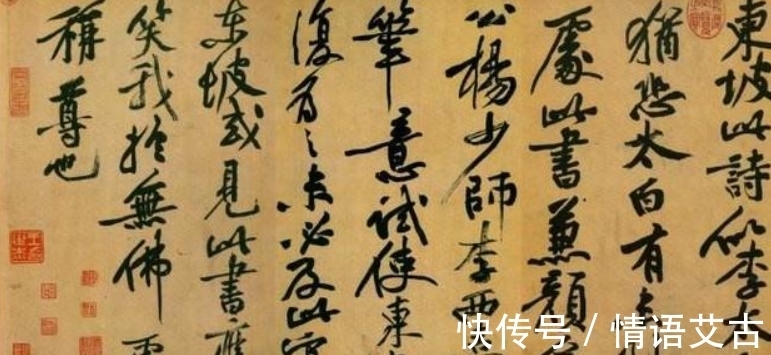 東坡此詩似李
猶恐太白有未
處此書兼顏
公楊少師李西
筆意試使東
復為之未必及此
東坡或見此書應
笑我於無佛
稱尊也
快传号 / 情语艾古